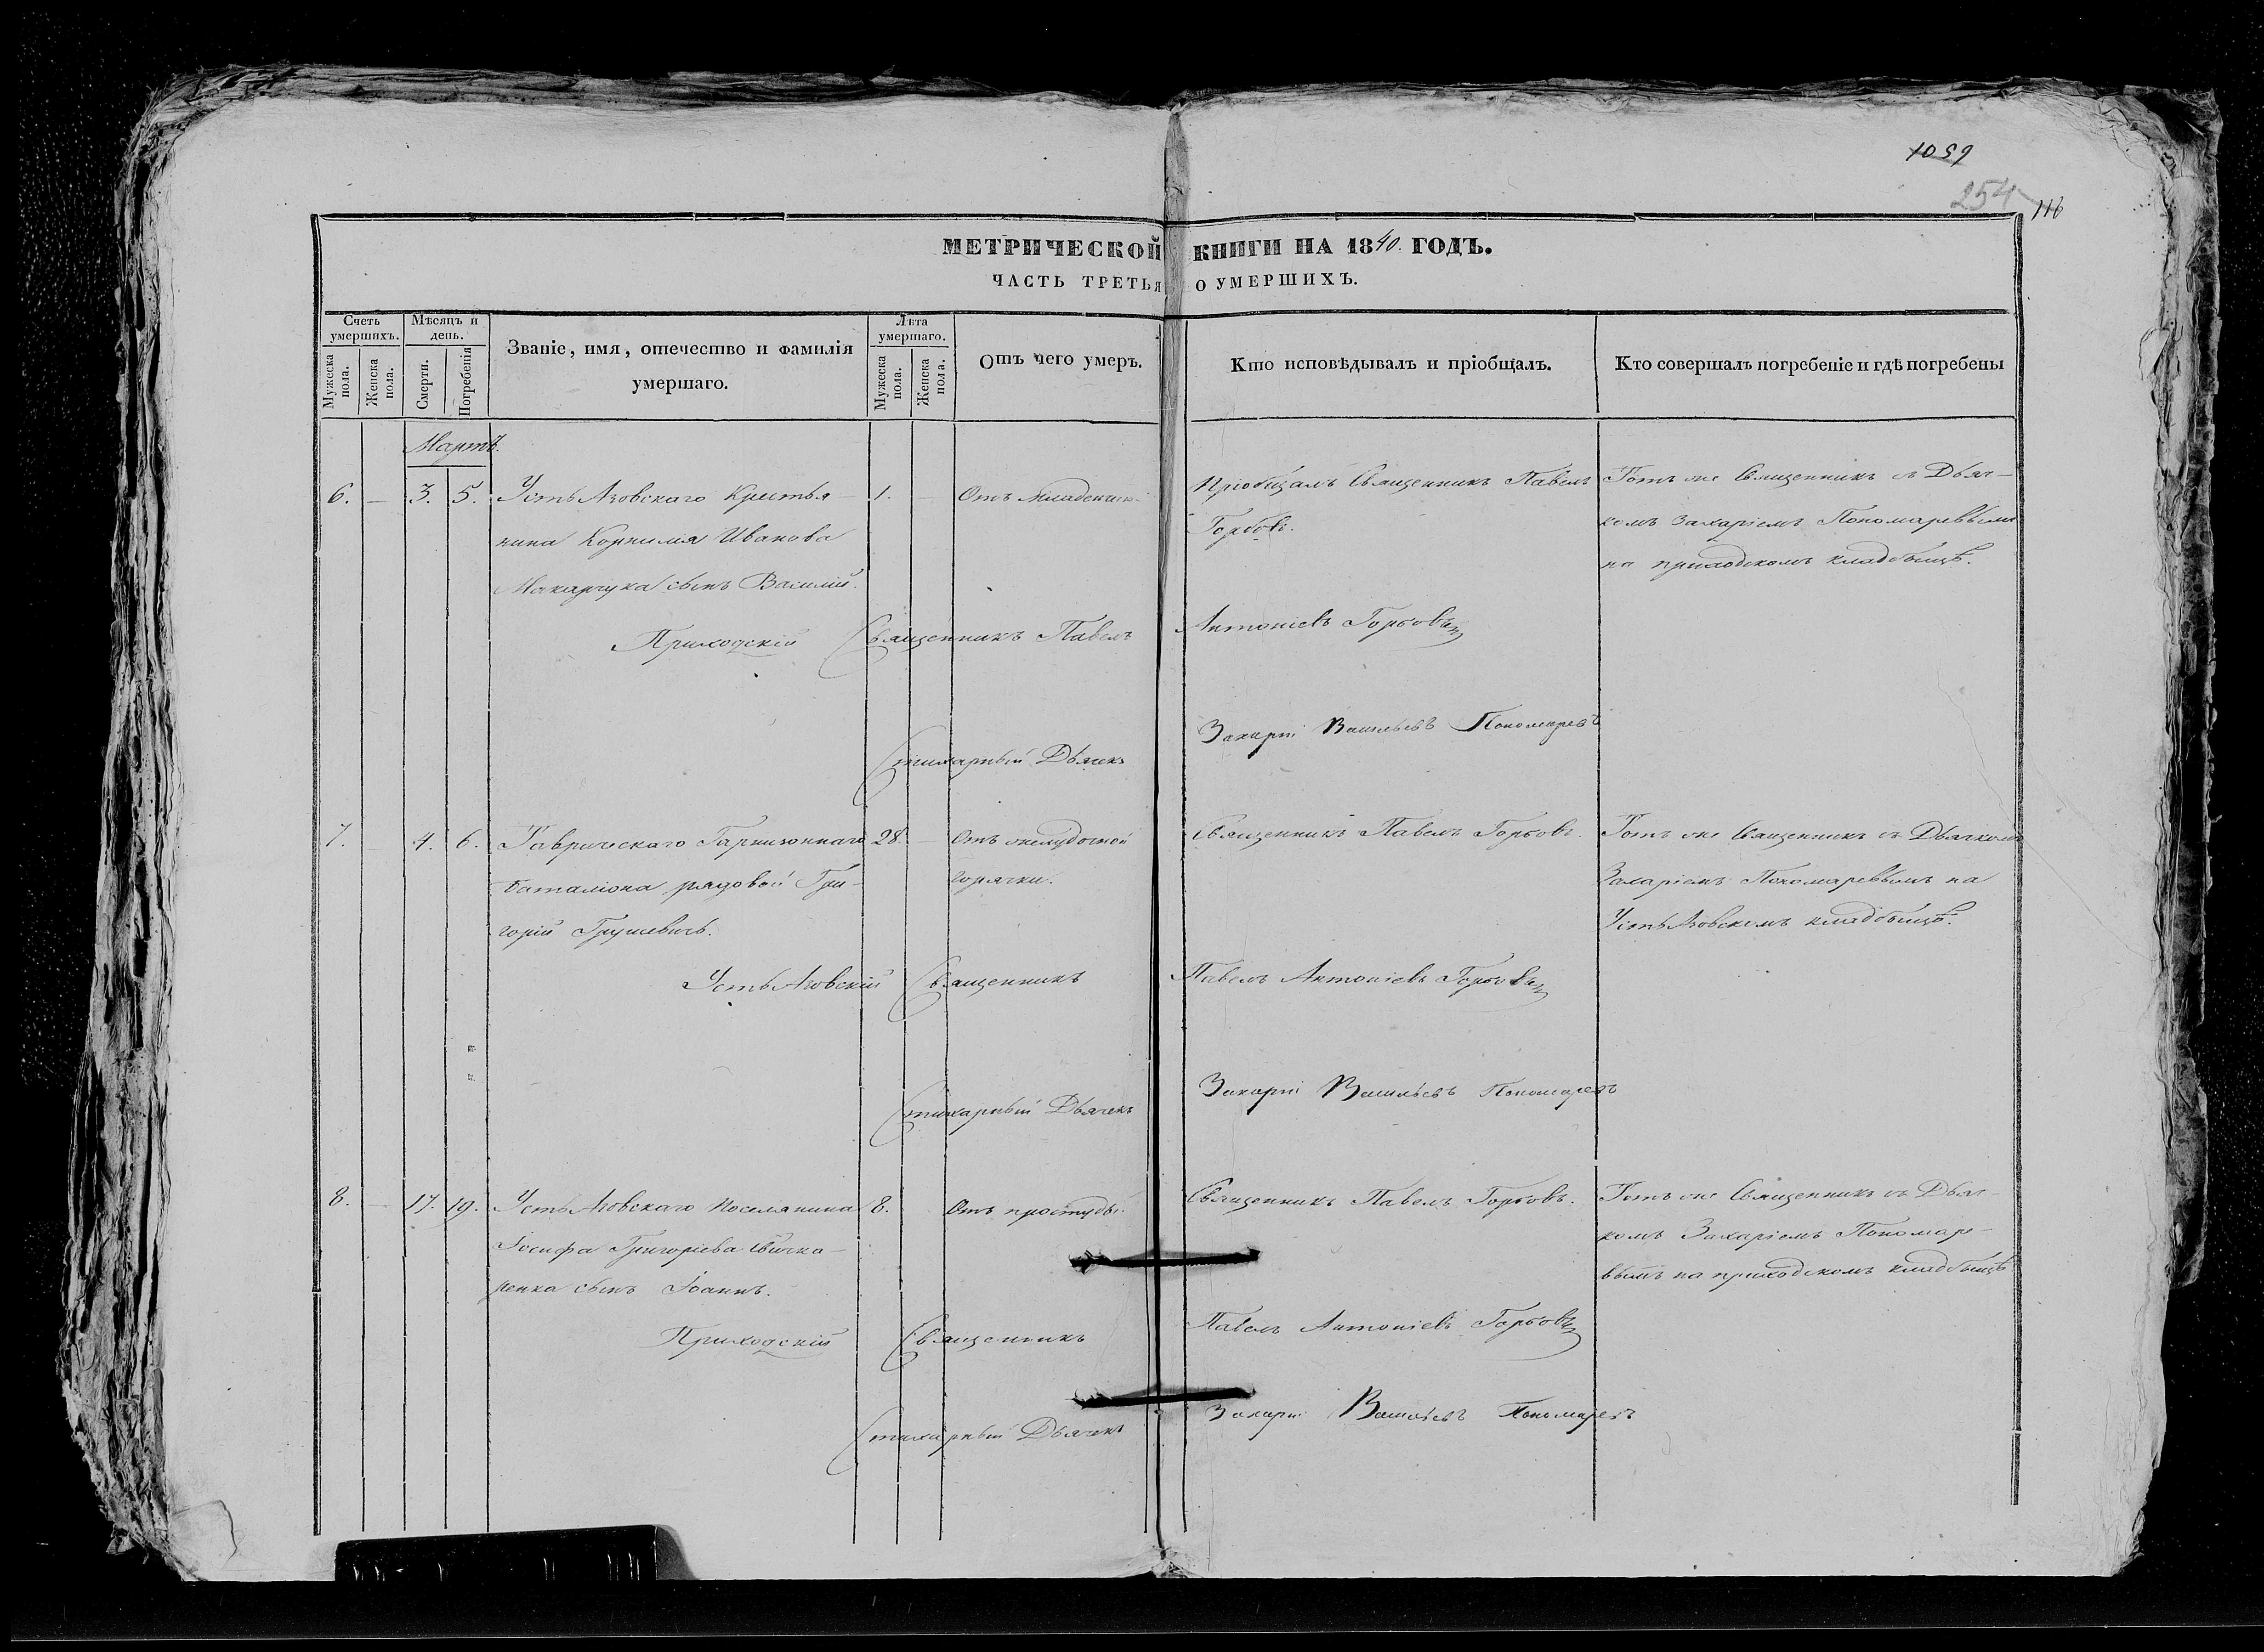 1059
254
116
МЕТРИЧЕСКОЙ КНИГИ НА 1840. ГОДЪ.
ЧАСТЬ ТРЕТЬЯ О УМЕРШИХЪ.
Счетъ умершихъ.
Мужеска пола.
Женска пола.
Мѣсяцъ и день.
Смерти.
Погребенія
Званіе, имя, отечество и фамилія
умершаго.
Лѣта умершаго.
Мужеска пола.
Женска пола.
Отъ чего умеръ.
Кто исповѣдывалъ и пріобщалъ.
Кто совершалъ погребеніе и гдѣ погребены
Мартъ.
6. — 3. 5. Усть Азовскаго Крестья-
нина Корнилія Иванова
Макарчука сынъ Василій.
1.
Отъ младенчик.
Пріобщалъ Священникъ Павелъ
Горбовъ.
Тотъ же Священникъ съ Дьяч-
комъ Захаріемъ Пономаревымъ
на приходскомъ кладбищѣ.
Приходскій Священникъ Павелъ Антоніевъ Горбовъ
Стихарный Дьячекъ Захарій Васильевъ Пономаревъ
7. — 4. 6. Таврическаго Гарнизоннаго
баталіона рядовой Гри-
горій Грушевичь.
28. —
Отъ желудочной
горячки.
Священникъ Павелъ Горбовъ.
Тотъ же Священникъ съ Дьячкомъ
Захаріемъ Пономаревымъ на
Усть Азовскомъ кладбищѣ.
Усть Азовскій Священникъ Павелъ Антоніевъ Горбовъ
Стихарный Дьячекъ Захарій Васильевъ Пономаревъ
8. — 17. 19. Усть Азовскаго поселянина
Іосифа Григорієва
ренка сынъ Іоаннъ.
8.
Отъ простуды.
Священникъ Павелъ Горбовъ.
Тотъ же Священникъ съ Дьяч-
комъ Захаріемъ Пономаре-
вымъ на приходскомъ кладбищѣ
Приходскій Священникъ Павелъ Антоніевъ Горбовъ
Стихарный Дьячекъ Захарій Васильевъ Пономаревъ